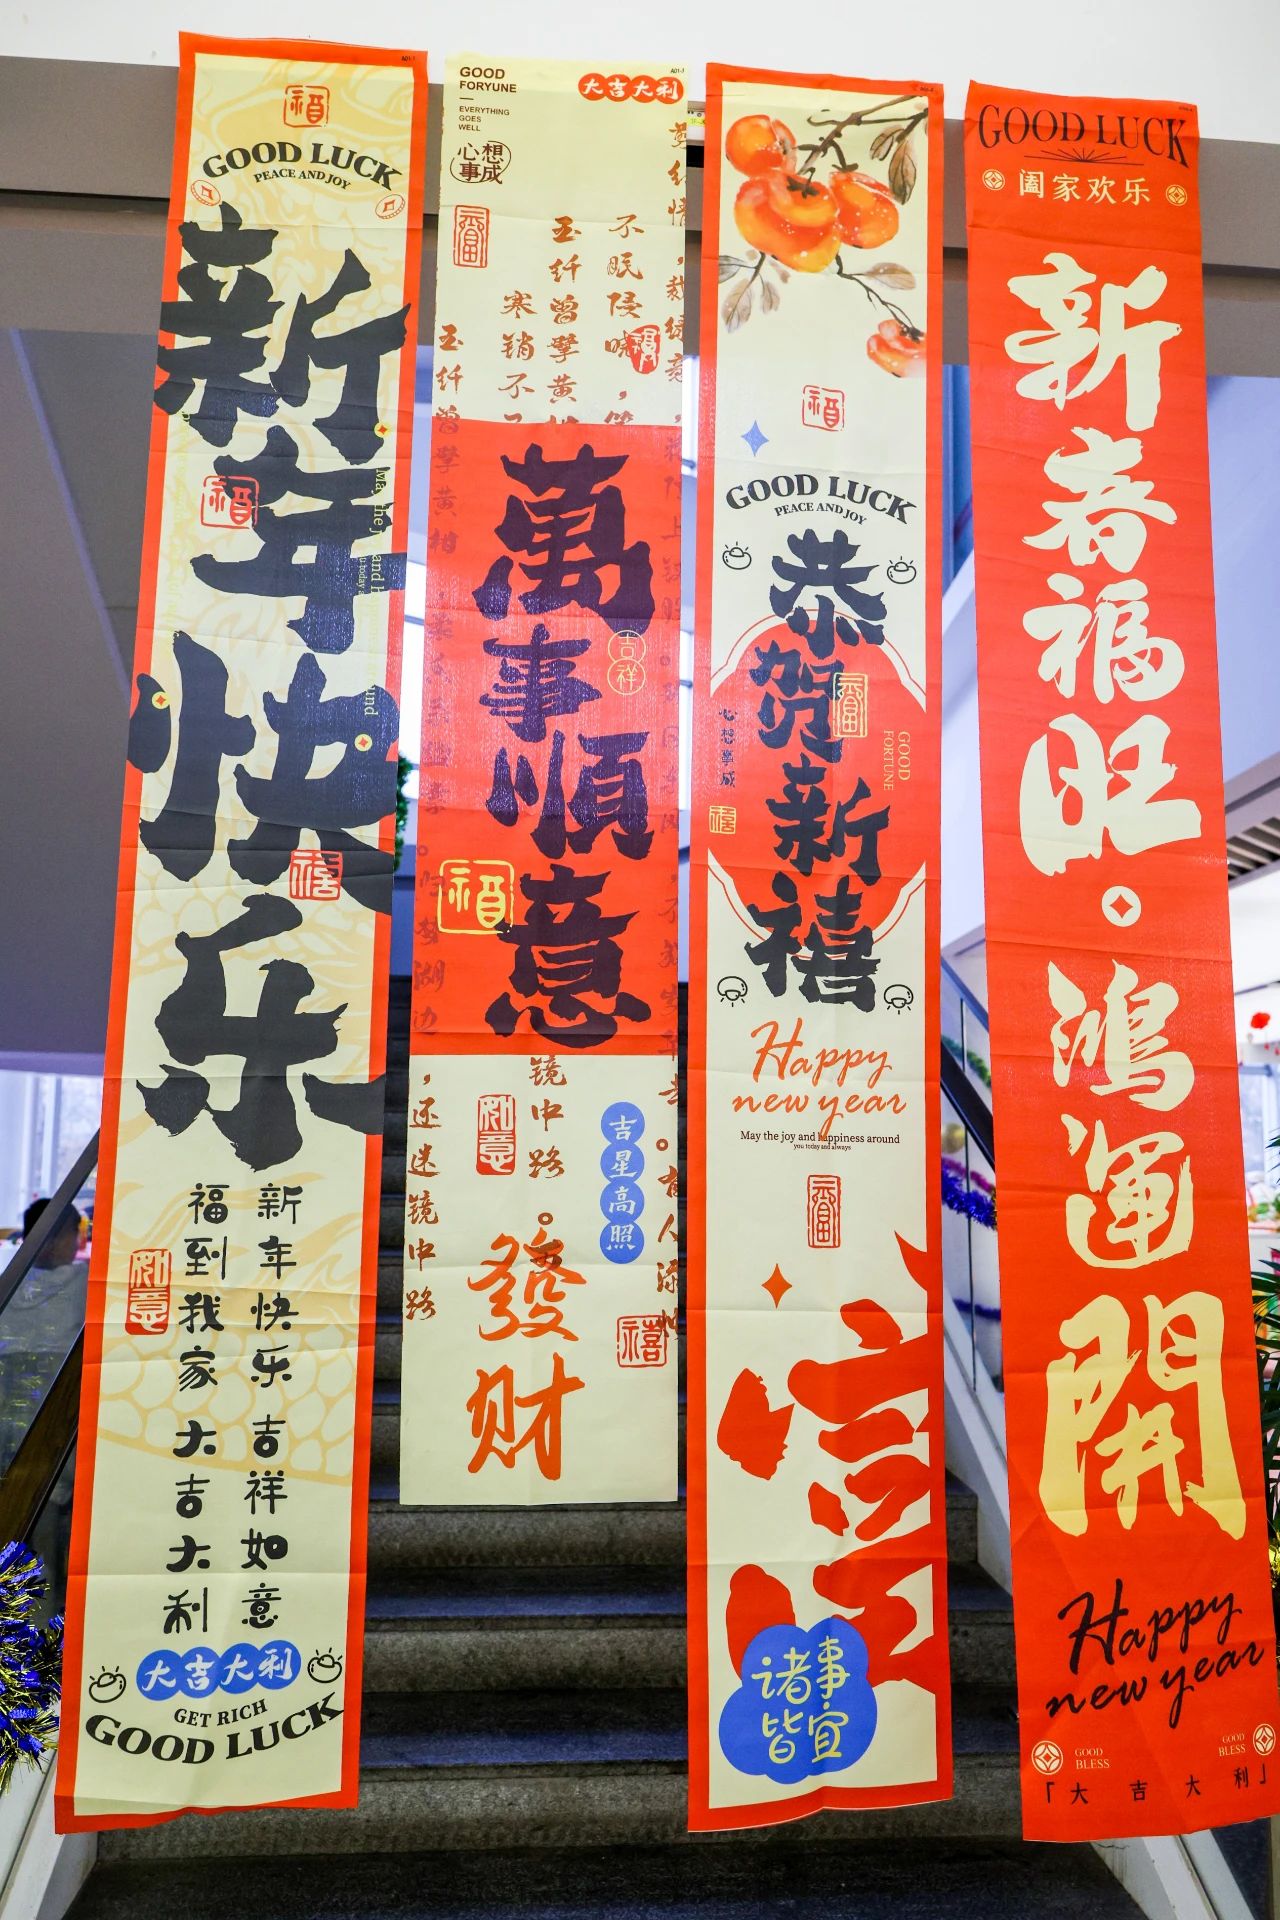 福
GOOD LUCK
PEACE AND JOY
新年快乐
福
禧
新年快乐 吉祥如意
福到我家 大吉大利
如意
大吉大利
GET RICH
GOOD LUCK
GOOD
FORYUNE
EVERYTHING
GOES
WELL
大吉大利
心想事成
不眠侵晓，
玉纤曾擘黄
寒销不
玉纤曾擘黄柑
萬事順意
吉祥
福
归梦湖边
，还迷镜中路
镜中路。
如意
吉星高照
發财
禧
福
GOOD LUCK
PEACE AND JOY
恭贺新禧
心想事成
GOOD
FORTUNE
禧
Happy
new year
May the joy and happiness around
you today and always
诸事
皆宜
GOOD LUCK
阖家欢乐
新春福旺。鴻運開
Happy
new year
GOOD
BLESS
GOOD
BLESS
「大吉大利」